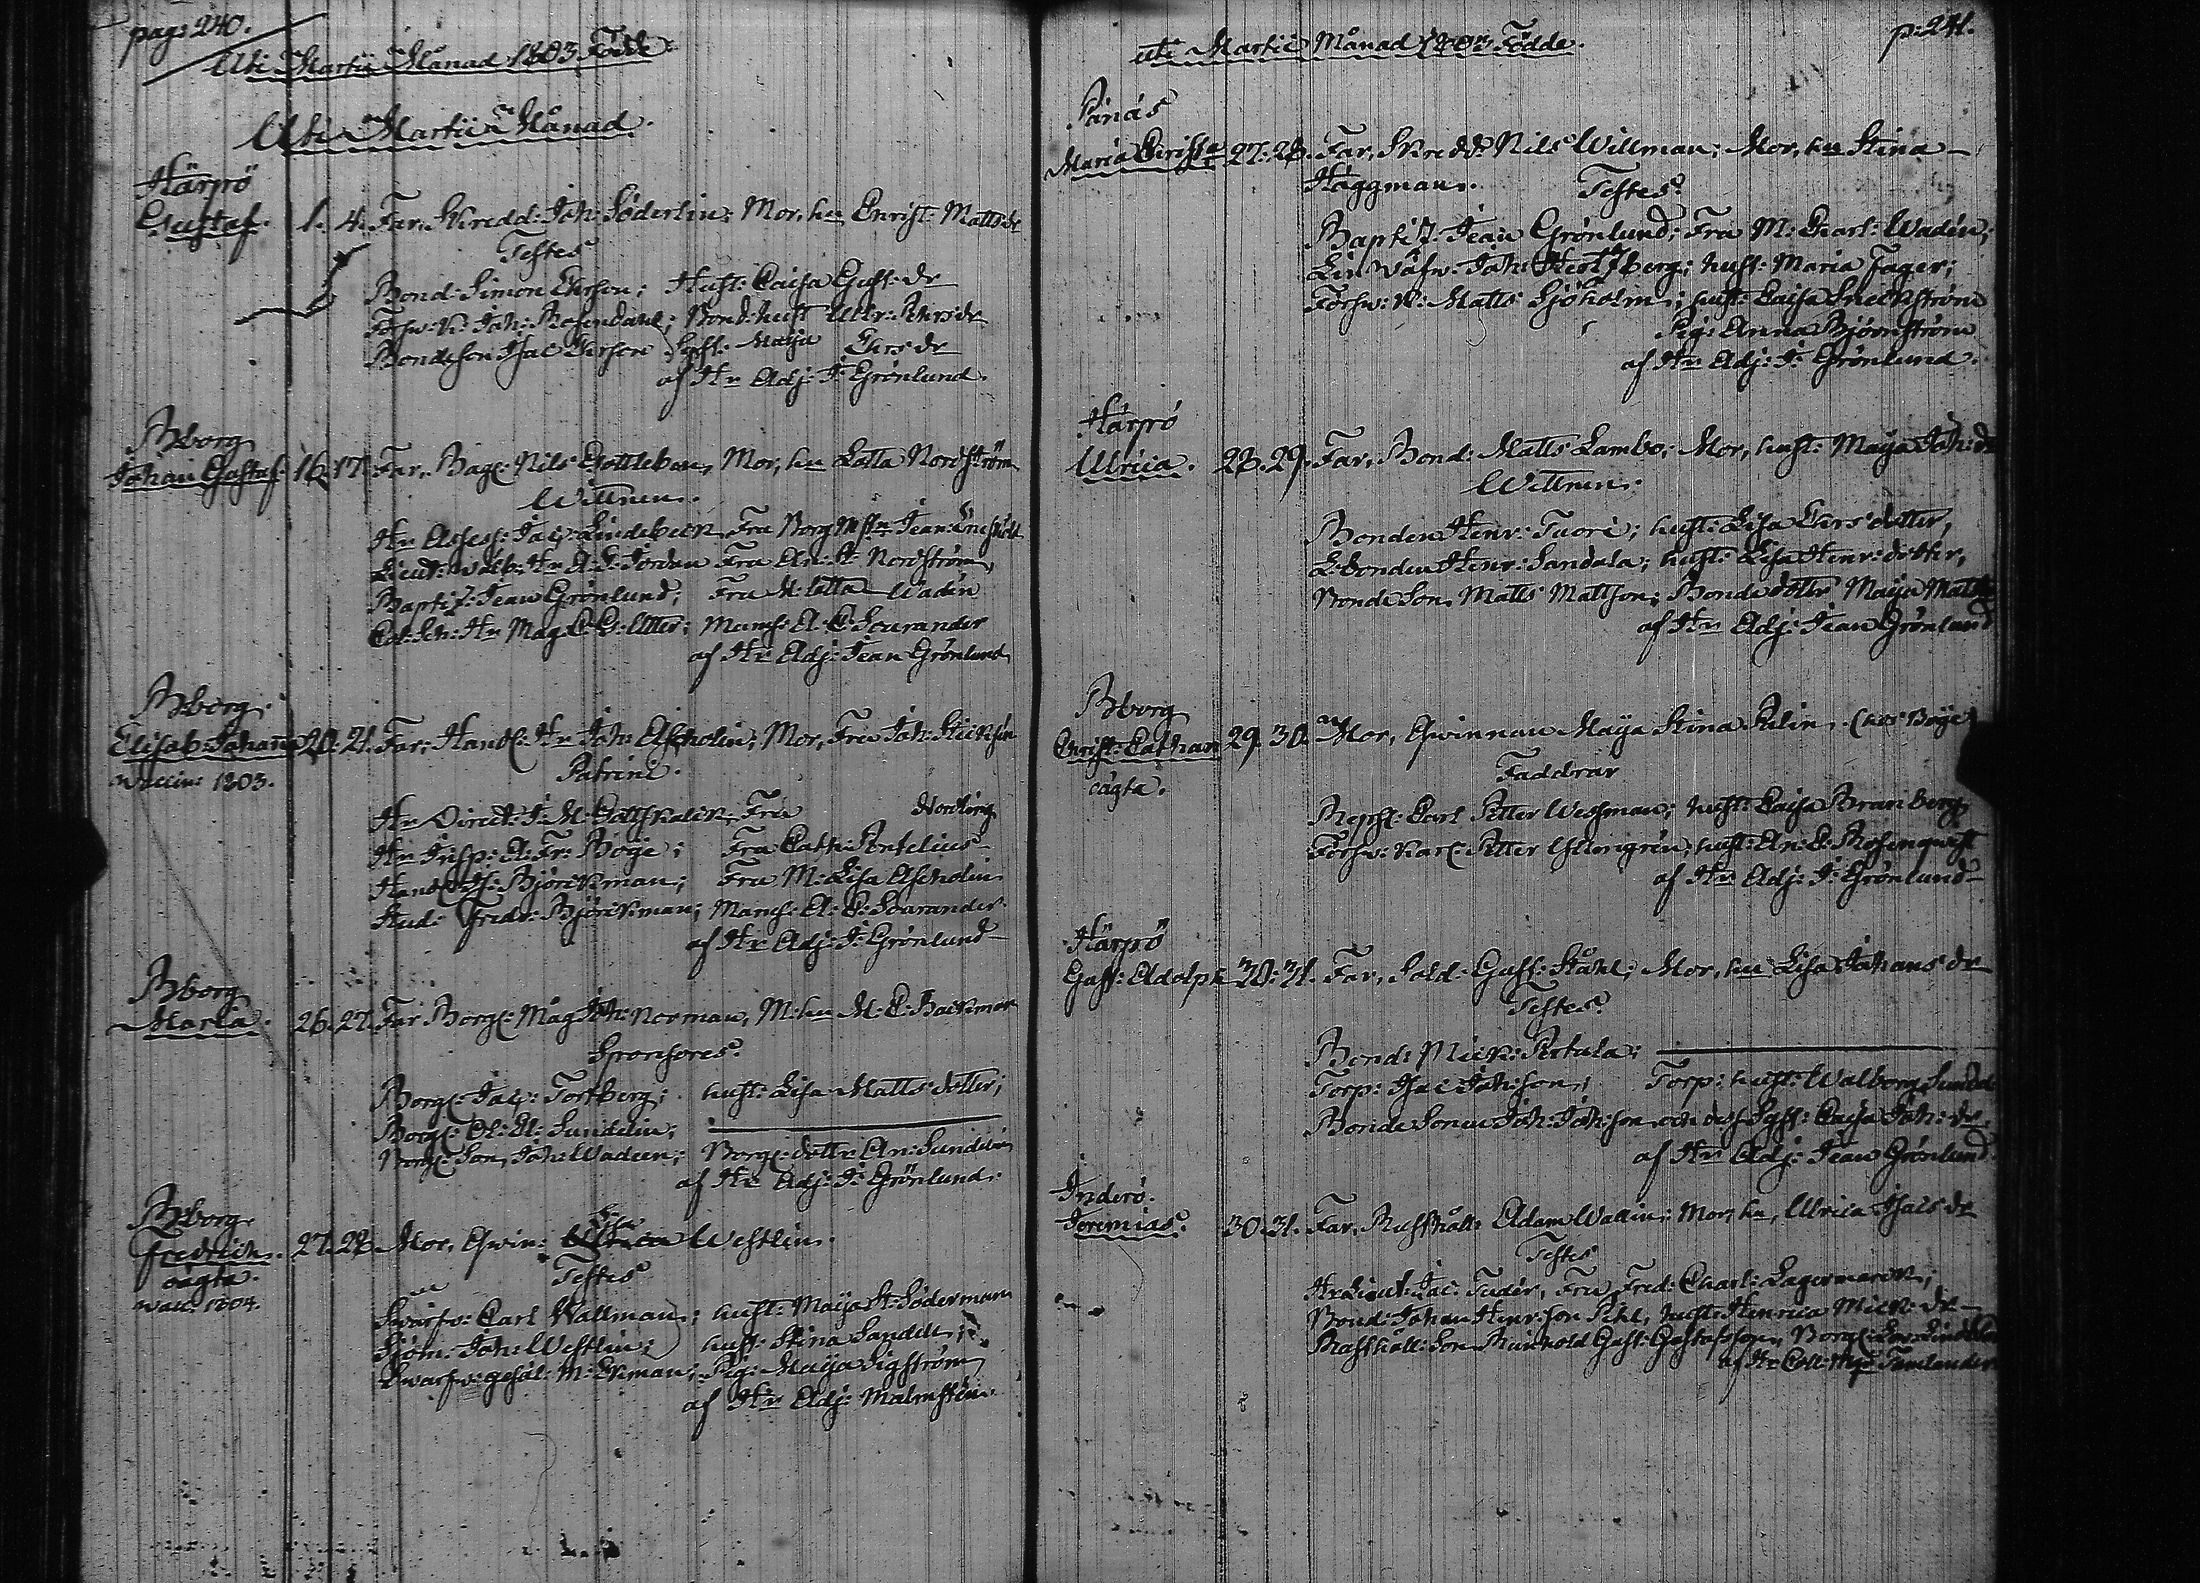 pag: 240.
Uti Martii Månad 1803 Födde
Uti Martii Månad.
Härpö
Gustaf. 1. 4. Far, Skredd: Joh: Söderlin; Mor, hu Christ: Mattsdr
Testes
Bond. Simon Ersson; Hust: Caisa Gust: dr
Försw: K: Joh: Rosendahl; Bond: hust Ulr: Ersdr
Bondeson Isac Ersson Syst: Maija Ersdr
af Hr Adj: J: Grönlund.
B:borg
Johan Gustaf. 16. 17. Far, Bag: Nils Gottleben, Mor, hu Lotta Nordström
Wittnen.
Hr Assess: Jac: Lindebeck, Fru Borg Mstn Jean:
Lieut: Hr A. F. Jordan Fru An: St: Nordström,
Baptiz: Jean Grönlund; Fru M: Lotta Wadén
Col: Sch: Hr Mag: C: G: Utter; Mams: A: C: Sourander
af Hr Adj: Jean Grönlund
B:borg.
Elisab: Johanna 20. 21. Far, Handl: Hr Joh: Ascholin; Mor, Fru Joh:
Waccin: 1803.
Patrini.
Hr Direct: J. M. Gottskalck, Fru Norling
Hr Insp: A: Fr: Böge; Fru Cath: Pontelius
Handl: Is: Björckman; Fru M: Lisa Ascholin
Stud: Fredr: Björckman; Mams: A: C: Sourander.
af Hr Adj: J: Grönlund
B:borg
Maria. 26. 27. Far Borg: Måg Joh: Norman, M: hu M: C: Backman
Sponsores.
Borg: Jac: Forsberg; hust: Lisa Mattsdotter;
Borg: Ol: El: Sundelin;
Borg: Son, Joh: Wadeen; Borg: dottr An: Sundelin
af Hr Adj: J: Grönlund.
B:borg.
Fredrich. 27. 28. Mor, Qwin: Westlin.
oägta.
Wacc: 1804.
Testes
Swarfw: Carl Wallman; hust: Maija St: Söderman
Sjöm: Joh: Westlin; hust: Stina Sandell;
Swarfw: gesäl: M: Ekman; Pig: Maija Sigström
af Hr Adj: Malmstén.
p: 241.
uti Martii Månad 1803 Födde.
Sånäs
Maria Christa 27. 28. Far, Skredd: Nils Willman; Mor, hu Stina
Häggman.
Testes
Baptiz: Jean Grönlund; Fru M: Charl: Wadén;
Lin wäfw: Joh: Hertzberg; hust: Maria Fager;
Försw: K: Matts Sjöholm; hust: Caisa Sneckström
Pig: Anna Björnström
af Hr Adj: J: Grönlund.
Härpö
Ulrica. 28. 29. Far, Bond: Matts Lambo; Mor, hust: Maija Joh: dr
Wittnen.
Bonden Henr: Tuori; hust: Lisa Ersdotter,
L:bonden Henr: Sandala; hust: Lisa Henr: dotter,
Bonde Son, Matts Mattson; Bonde dotter Maija Matts
af Hr Adj: Jean Grönlund
B:borg
Christ: Cathar: 29. 30. Mor, Qwinnan Maija Stina Palin. (hos Böge)
oägta.
Faddrar
Repsl: Carl Petter Wessman; hust: Caisa Branberg,
Försw: Karl Petter; hust: An: C: Rosenqwist
af Hr Adj: J: Grönlund
Härpö
Gust: Adolph 30. 31. Far, Sold: Gust: Ståhl; Mor, hu Lisa Johansdr
Testes.
Bond: Mick: Pertula;
Torp: Isac Johsson; Torp: hust: Walborg
Bonde Sonen Joh: Johsson och dess Syst: Caisa Joh: dr
af Hr Adj: Jean Grönlund.
Inderö.
Jeremias. 30. 31. Far, Rusthåll: Adam Wallin; Mor, hu, Ulrica Isacsdr
Testes
Hr Lieut: Jac: Tudér, Fru Fred: Charl: Lagermarck;
Bond: Johan Henrsson Pihl, hustr: Henrica Mick: dr
Rusthåll: Son Reinhold Gust: Gustafsson, Borg:
af Hr Coll: Mag: Tamlander